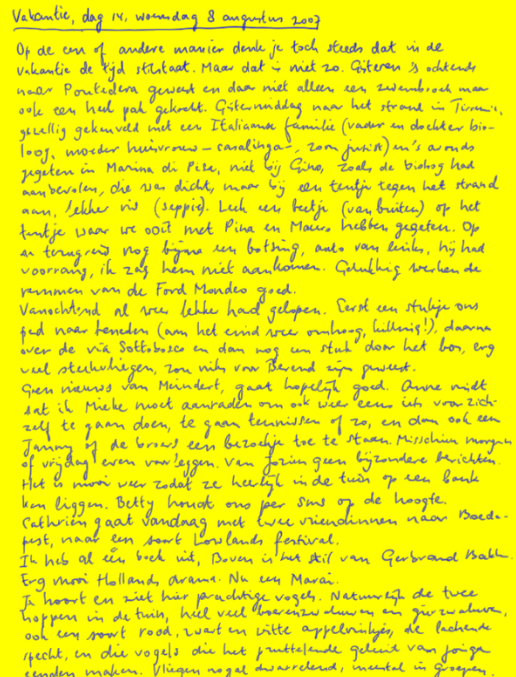 Vakantie, dag 14, woensdag 8 augustus 2007
Op de een of andere manier denk je toch steeds dat in de
vakantie de tijd stilstaat. Maar dat is niet zo. Gisteren 's ochtends
naar Pontedera geweest en daar niet alleen een zwembroek maar
ook een heel pak gekocht. Gistermiddag naar het strand in Tirrenia,
gezellig gekeuveld met een Italiaanse familie (vader en dochter bio-
loog, moeder huisvrouw - casalinga -, zoon jurist) en 's avonds
gegeten in Marina di Pisa, niet bij Gino, zoals de bioloog had
aanbevolen, die was dicht, maar bij een tentje tegen het strand
aan, lekker vis (seppie). Leek een beetje (van buiten) op het
tentje waar we ooit met Pina en Mauro hebben gegeten. Op
de terugreis nog bijna een botsing, auto van links, hij had
voorrang, ik zag hem niet aankomen. Gelukkig werken de
remmen van de Ford Mondeo goed.
Vanochtend al weer lekker hard gelopen. Eerst een stukje ons
pad naar beneden (aan het eind weer omhoog, killing!), daarna
over de via Sottobosco en dan nog een stuk door het bos, erg
veel steekvliegen, zou niks voor Berend zijn geweest.
Geen nieuws van Meindert, gaat hopelijk goed. Anne vindt
dat ik Mieke moet aanraden om ook weer eens iets voor zich-
zelf te gaan doen, te gaan tennissen of zo, en dan ook een
Janny of de broers een bezoekje toe te staan. Misschien morgen
of vrijdag even voorleggen. Van Jozien geen bijzondere berichten.
Het is mooi weer zodat ze heerlijk in de tuin op een bank
kan liggen. Betty houdt ons per sms op de hoogte.
Cathrien gaat vandaag met twee vriendinnen naar Boeda-
pest, naar een soort Lowlands festival.
Ik heb al één boek uit, Boven is het stil van Gerbrand Bakker.
Erg mooi Hollands drama. Nu een Márai.
Je hoort en ziet hier prachtige vogels. Natuurlijk de twee
hoppen in de tuin, heel veel boerenzwaluwen en gierzwaluwen,
ook een soort rood, zwart en witte appelvinkjes, de lachende
specht, en die vogels die het pruttelende geluid van jonge
eenden maken. Vliegen nogal dwarrelend, meestal in groepen.